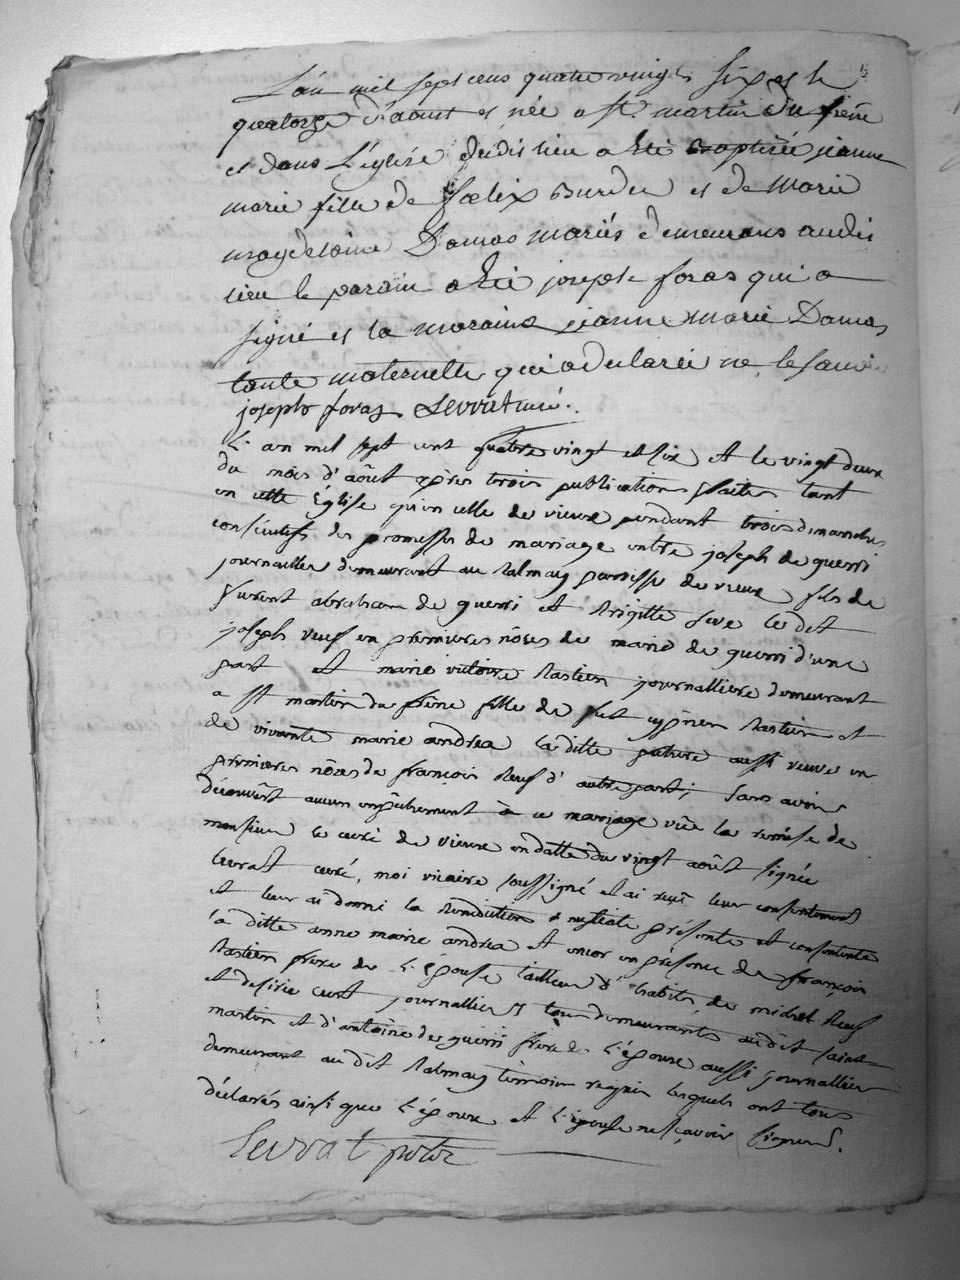 L'an mil sept cens quatre vingts six et le
quatorze d'aout est née a st. martin du frêne
et dans l'église dudit lieu a été baptisée jeanne
marie fille de foelix Burdu et de marie
magdelaine Damas mariés demeurans audit
lieu le parain a été joseph foras qui a
signé et la maraine jeanne marie Damas
tante maternelle qui a declaré ne le savoir
joseph foras Levrat curé.
L'an mil sept cent quatre vingt et six et le vingt deux
du mois d'aôut après trois publications faites tant
en cette Église qu'en celle de vieuve pendant trois dimanches
consécutifs des promesses de mariage entre joseph de guerri
journallier demeurant au paroisse de vieuve fils de
furent abraham de guerri et Brigitte le dit
joseph veuf en premieres nôces de marie de guerri d'une
part et marie victoire Rastein journalliere demeurant
a st martin du frêne fille de fut Rastein et
de vivante marie andrea la ditte aussi veuve en
premieres nôces de françois d'autre part; sans avoir
découvert aucun empêchement à ce mariage vûe la remise de
monsieur le curé de vieuve en datte du vingt août signée
levrat curé, moi vicaire soussigné et ai reçu leur consentement
et leur ai donné la Bénédiction présente et consentante
la ditte anne marie andrea et encor en présence de françois
Rastein frere de l'épouse tailleur d'habits, de michel
et desirée journalliers tous demeurants audit saint
martin et d'antoine de guerri frere de l'époux aussi journallier
demeurant au dit témoins requis lesquels ont tous
déclarés ainsi que l'époux et l'épouse ne sçavoir signer.
Levrat